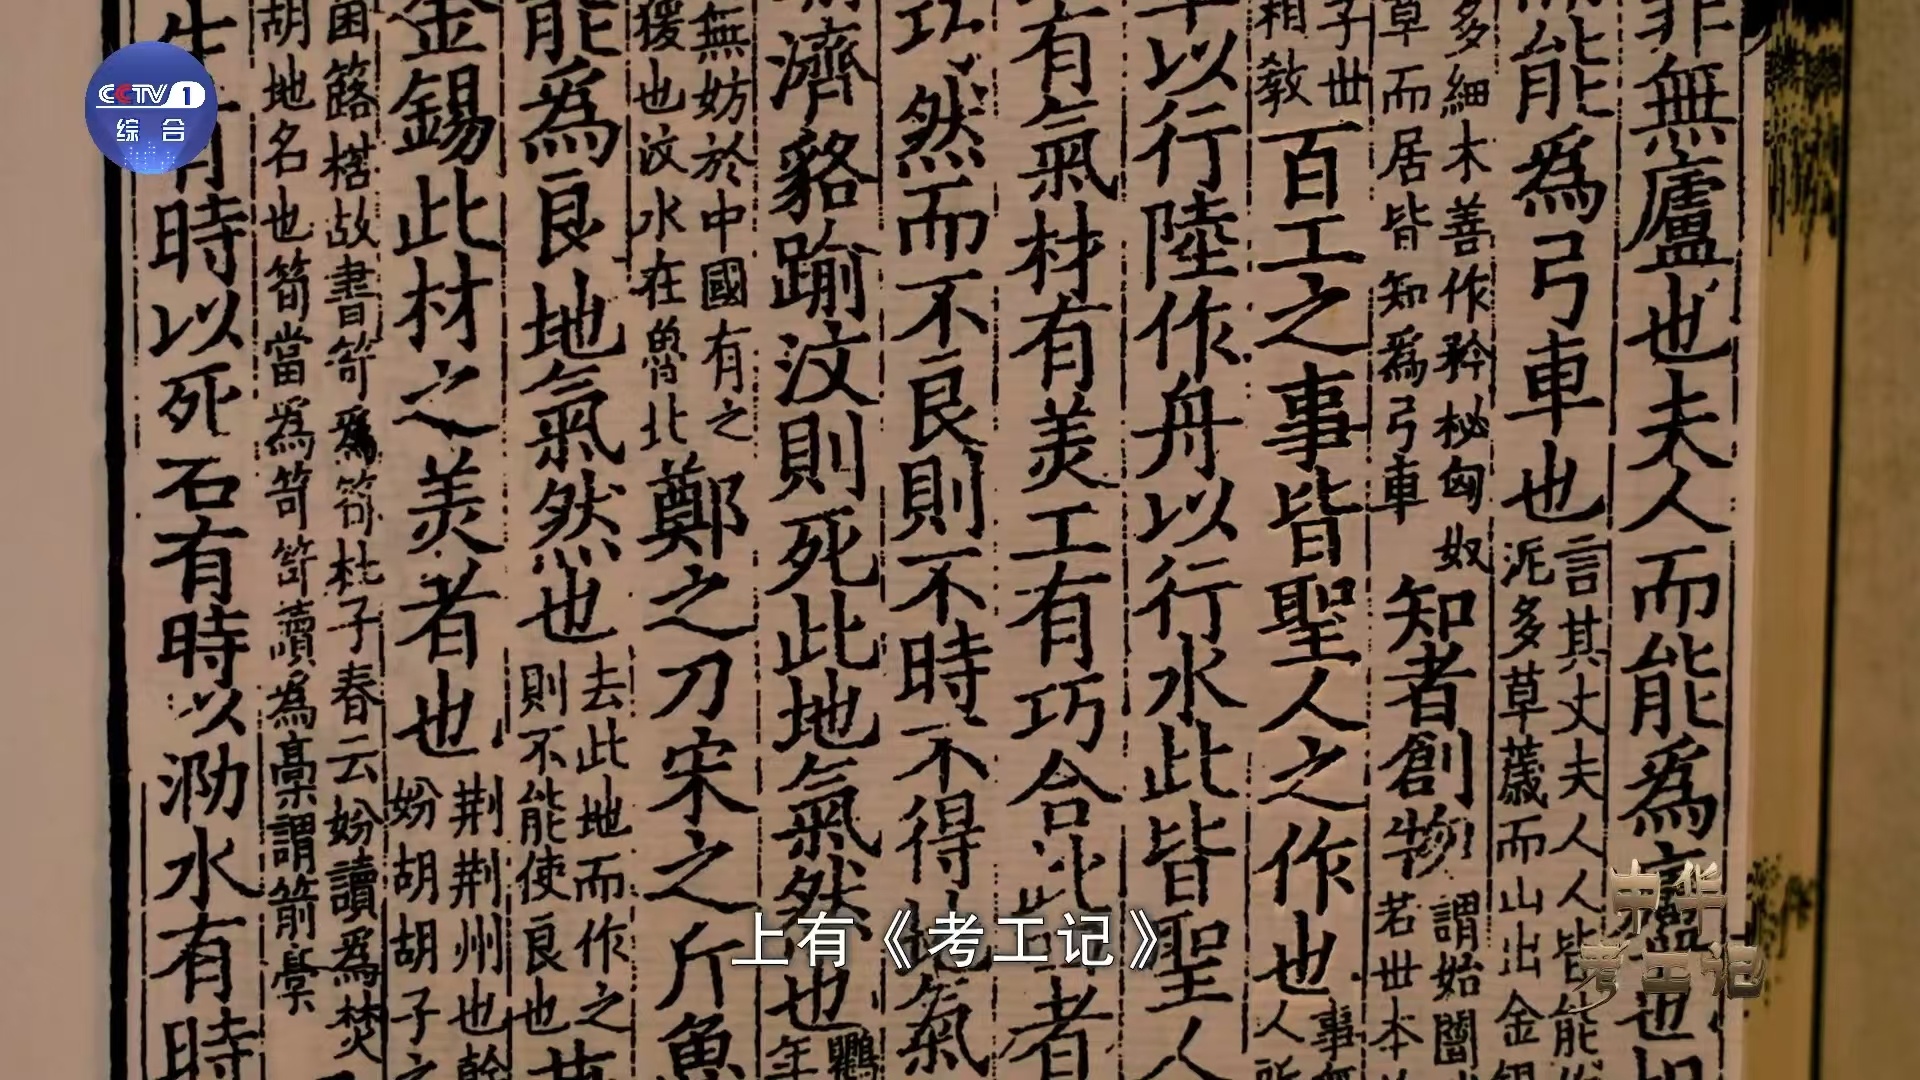 CCTV 1
综合
非無廬也夫人而能爲廬也
能爲弓車也
言其丈夫人人皆能
泥多草薉而山出金錫
多細木善作矜柲匈奴
草而居皆知爲弓車
知者創物
謂始闓
若世本
子世
相教
百工之事皆聖人之作也
事無
人所
以行陸作舟以行水此皆聖人
有氣材有美工有巧合此者
巧然而不良則不時不得地氣
濟貉踰汶則死此地氣然也
鸜
無妨於中國有之
猨也汶水在魯北
鄭之刀宋之斤魯
能爲良地氣然也
去此地而作之
則不能使良也
金錫此材之美者也
荆荆州也幹
妢胡胡子之
箘簵楛故書笴爲笱杜子春云妢讀爲焚
胡地名也笱當爲笴笴讀爲槀謂箭槀
生有時以死石有時以泐水有時
上有《考工记》
中华
考工记